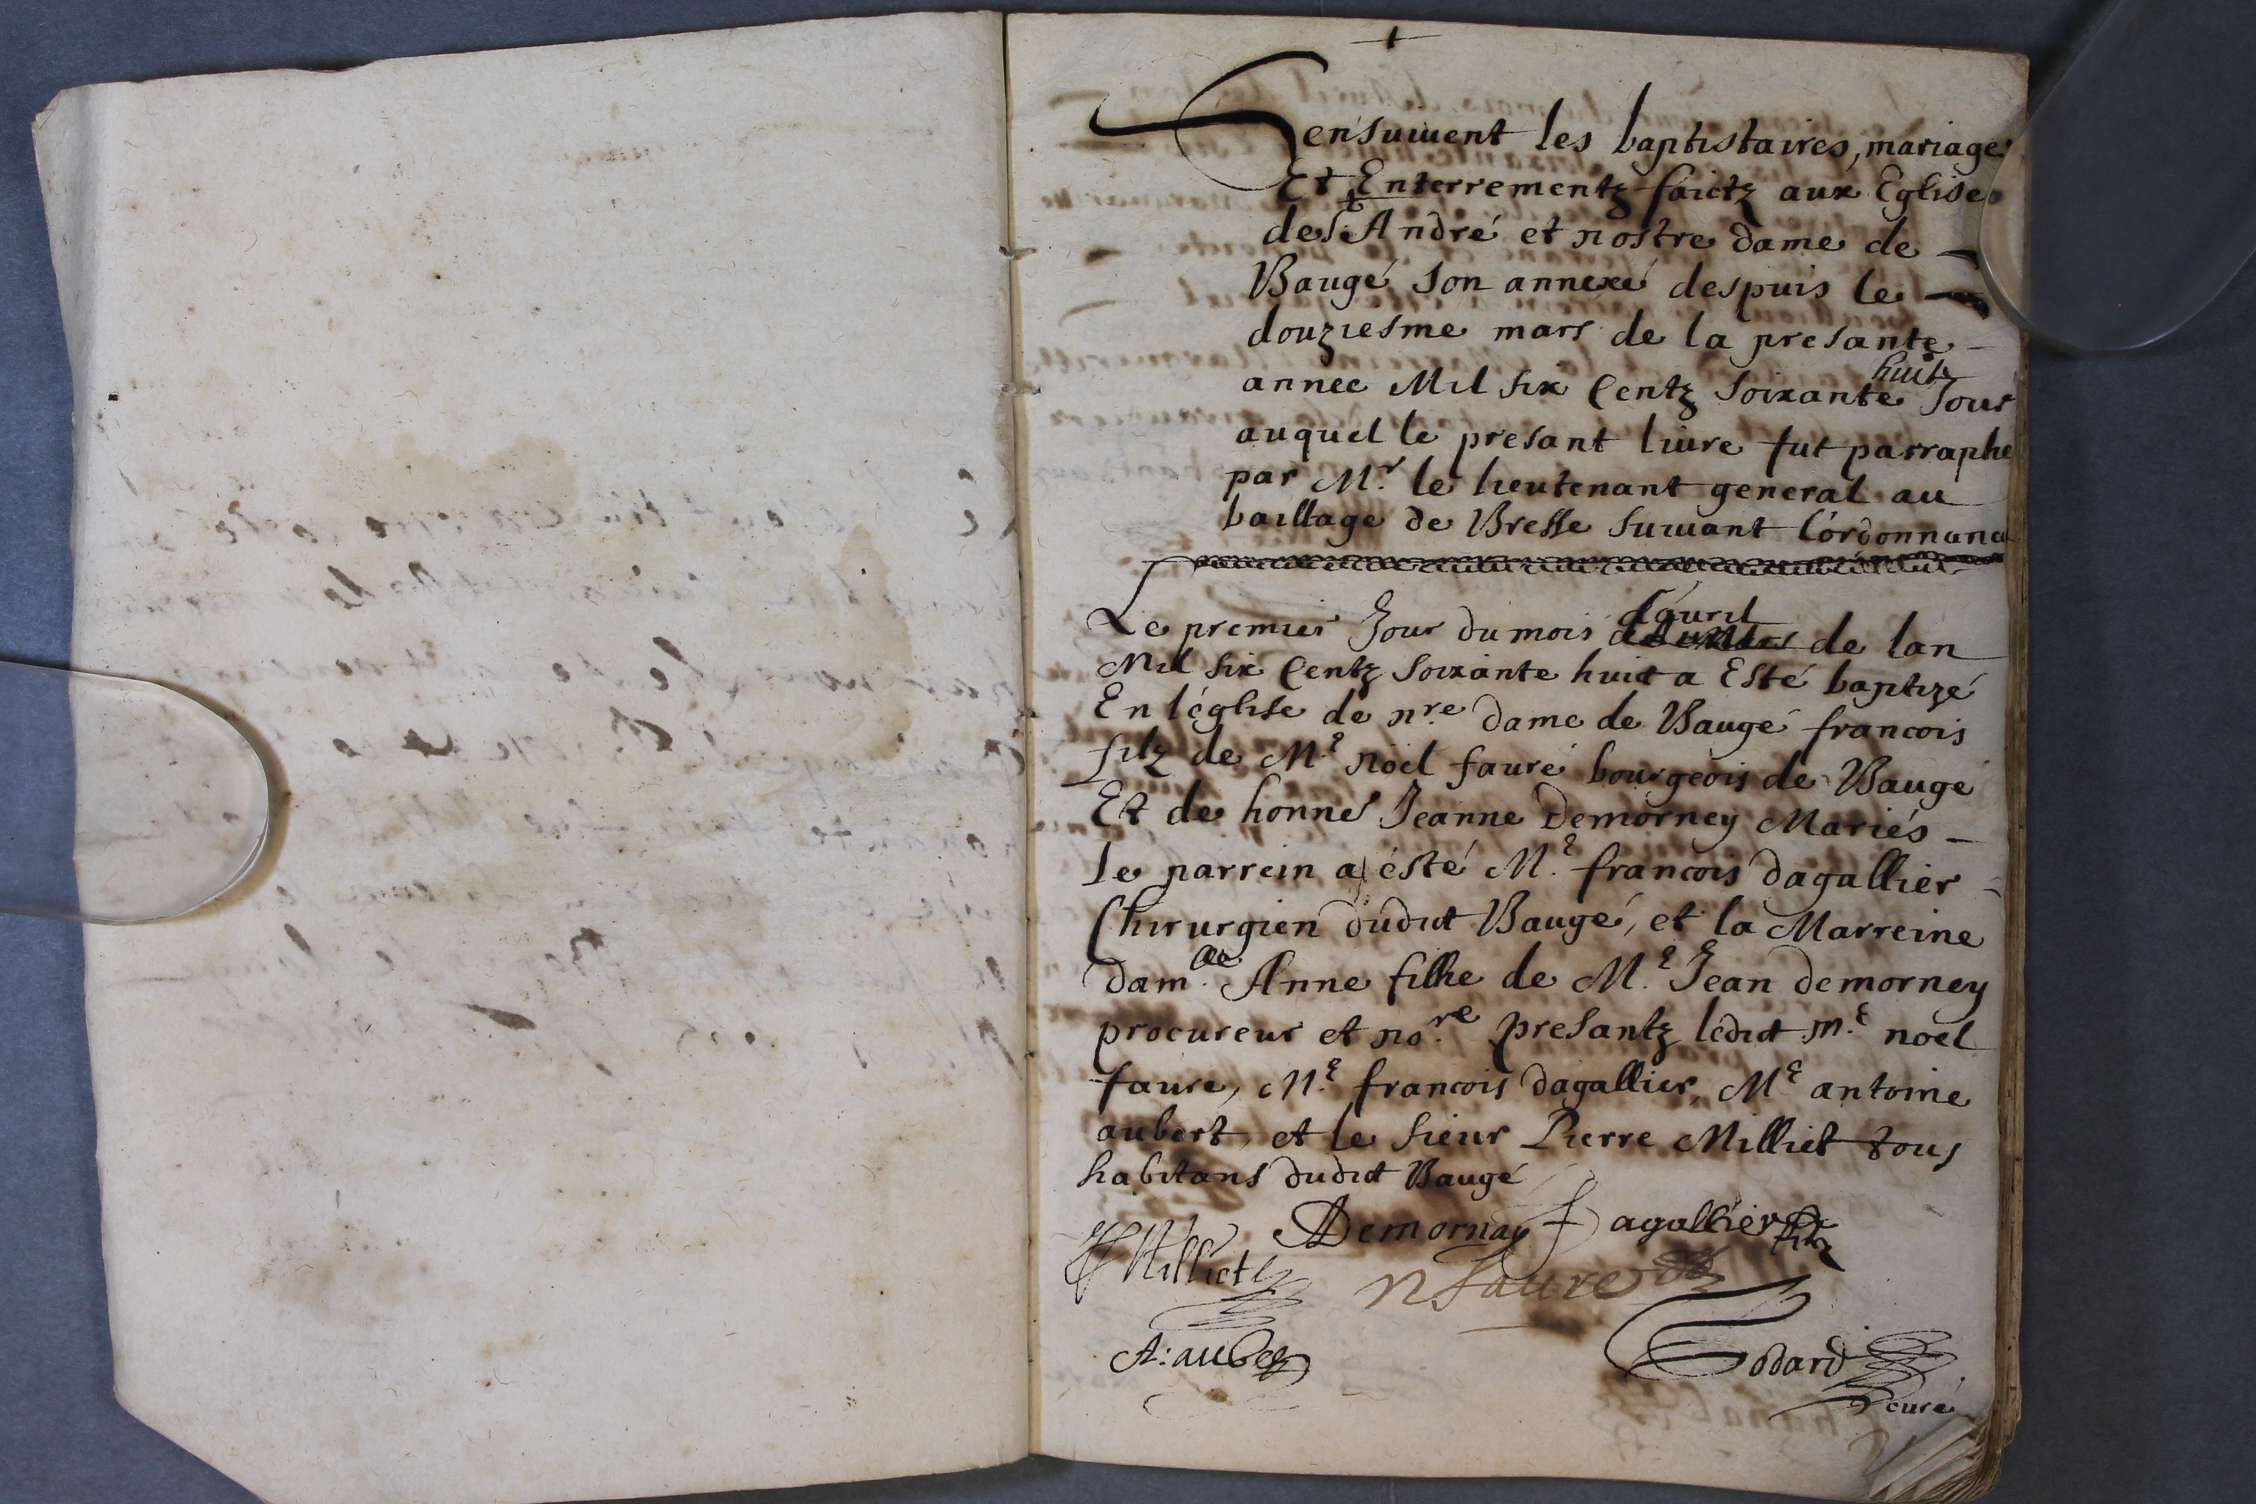 Sensuiuent les baptistaires, mariages
Et Enterrementz faictz aux Eglises
de St André et nostre dame de
Baugé son annexé despuis le
douziesme mars de la presante
annee Mil six Centz soixante huit Jour
auquel le presant liure fut parraphé
par Mr. le lieutenant general au
baillage de Bresse suiuant l'ordonnance
Le premier Jour du mois d'auril de lan
Mil six Centz soixante huict a Esté baptizé
En l'église de nre. dame de Baugé francois
filz de Me. noël faure bourgeois de Baugé
Et de honne Jeanne Demorney Mariés
le parrein a esté Me. francois dagallier
Chirurgien dudict Baugé, et la Marreine
damlle. Anne fillie de Me. Jean demorney
procureur et nore. presantz ledict me. noel
faure, Me. francois dagallier, Me antoine
aubert, et le sieur Pierre Milliet tous
habitans dudict Baugé
Demornay f Dagallier
Milliet n faure
A: aubert Godard
curé